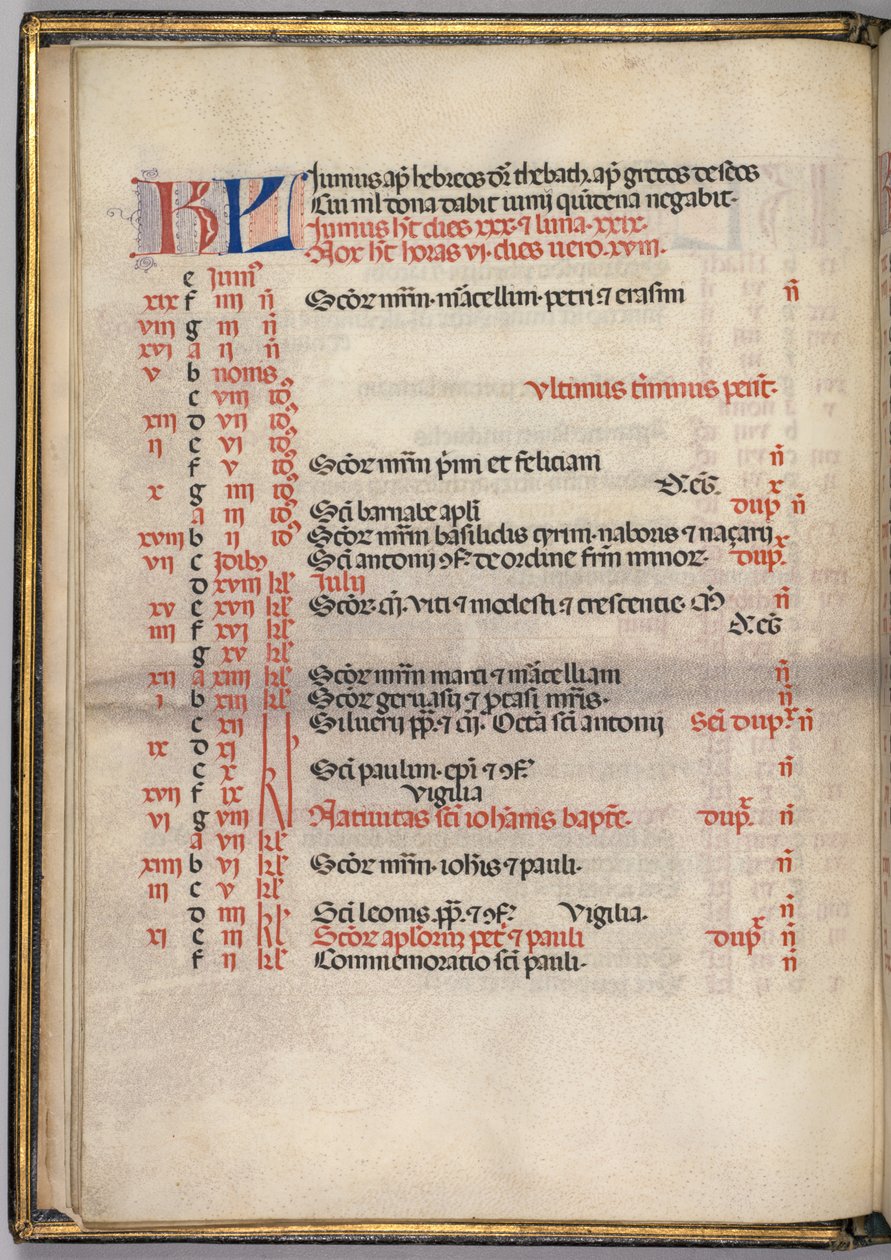 KL Junius ap̄ hebreos dr̄ thebath. ap̄ grecos deseos
Lux nil dona dabit iunij quītena negabit.
Junius hꝫt dies xxx. ⁊ luna. xxix.
Nox hꝫt horas vi. dies uero. xviii.
e Junii
xix f iiii ñ Sctōr mr̄m. m̄cellini. petri ⁊ erasmi ñ
viii g iii ñ
xvi a ii ñ
v b nonis
c viii id9 vltimus t̄minus pent̄.
xiii d vii id9
ii e vi id9
f v id9 Sctōr mr̄m p̄mi et feliciani ñ
x g iiii id9
a iii id9 Sc̄i barnabe apl̄i dup̲x ñ
xviii b ii id9 Sctōr mr̄m basilidis cyrini. naboris ⁊ naçarij
vii c Jdibꝫ Sc̄i antonij ꝯf. de ordine fr̄m minor. dupx.
d xviii kl̄ Julij
xv e xvii kl̄ Sctōr. m̄. viti ⁊ modesti ⁊ crescentie. m̄ ñ
iiii f xvi kl̄
g xv kl̄
xii a xiiii kl̄ Sctōr mr̄m marci ⁊ m̄celliani ñ
i b xiii kl̄ Sctōr geruasij ⁊ ꝓtasi mr̄is. ñ
c xii Siluerij pp̄. ⁊ m̄. Octā sc̄i antonij Sc̄i dupx. ñ
ix d xi kl̄
e x Sc̄i paulini. ep̄i ⁊ ꝯf. ñ
xvii f ix Vigilia
vi g viii Natiuitas sc̄i ioh̄annis bapt̄e. dupx. ñ
a vii kl̄
xiiii b vi kl̄ Sctōr mr̄m. ioh̄is ⁊ pauli. ñ
iii c v kl̄
d iiii kl̄ Sc̄i leonis. pp̄. ⁊ ꝯf. Vigilia. ñ
xi e iii kl̄ Sctōr apl̄orum pet̄. ⁊ pauli dupx ñ
f ii kl̄ Commemoratio sc̄i pauli. ñ